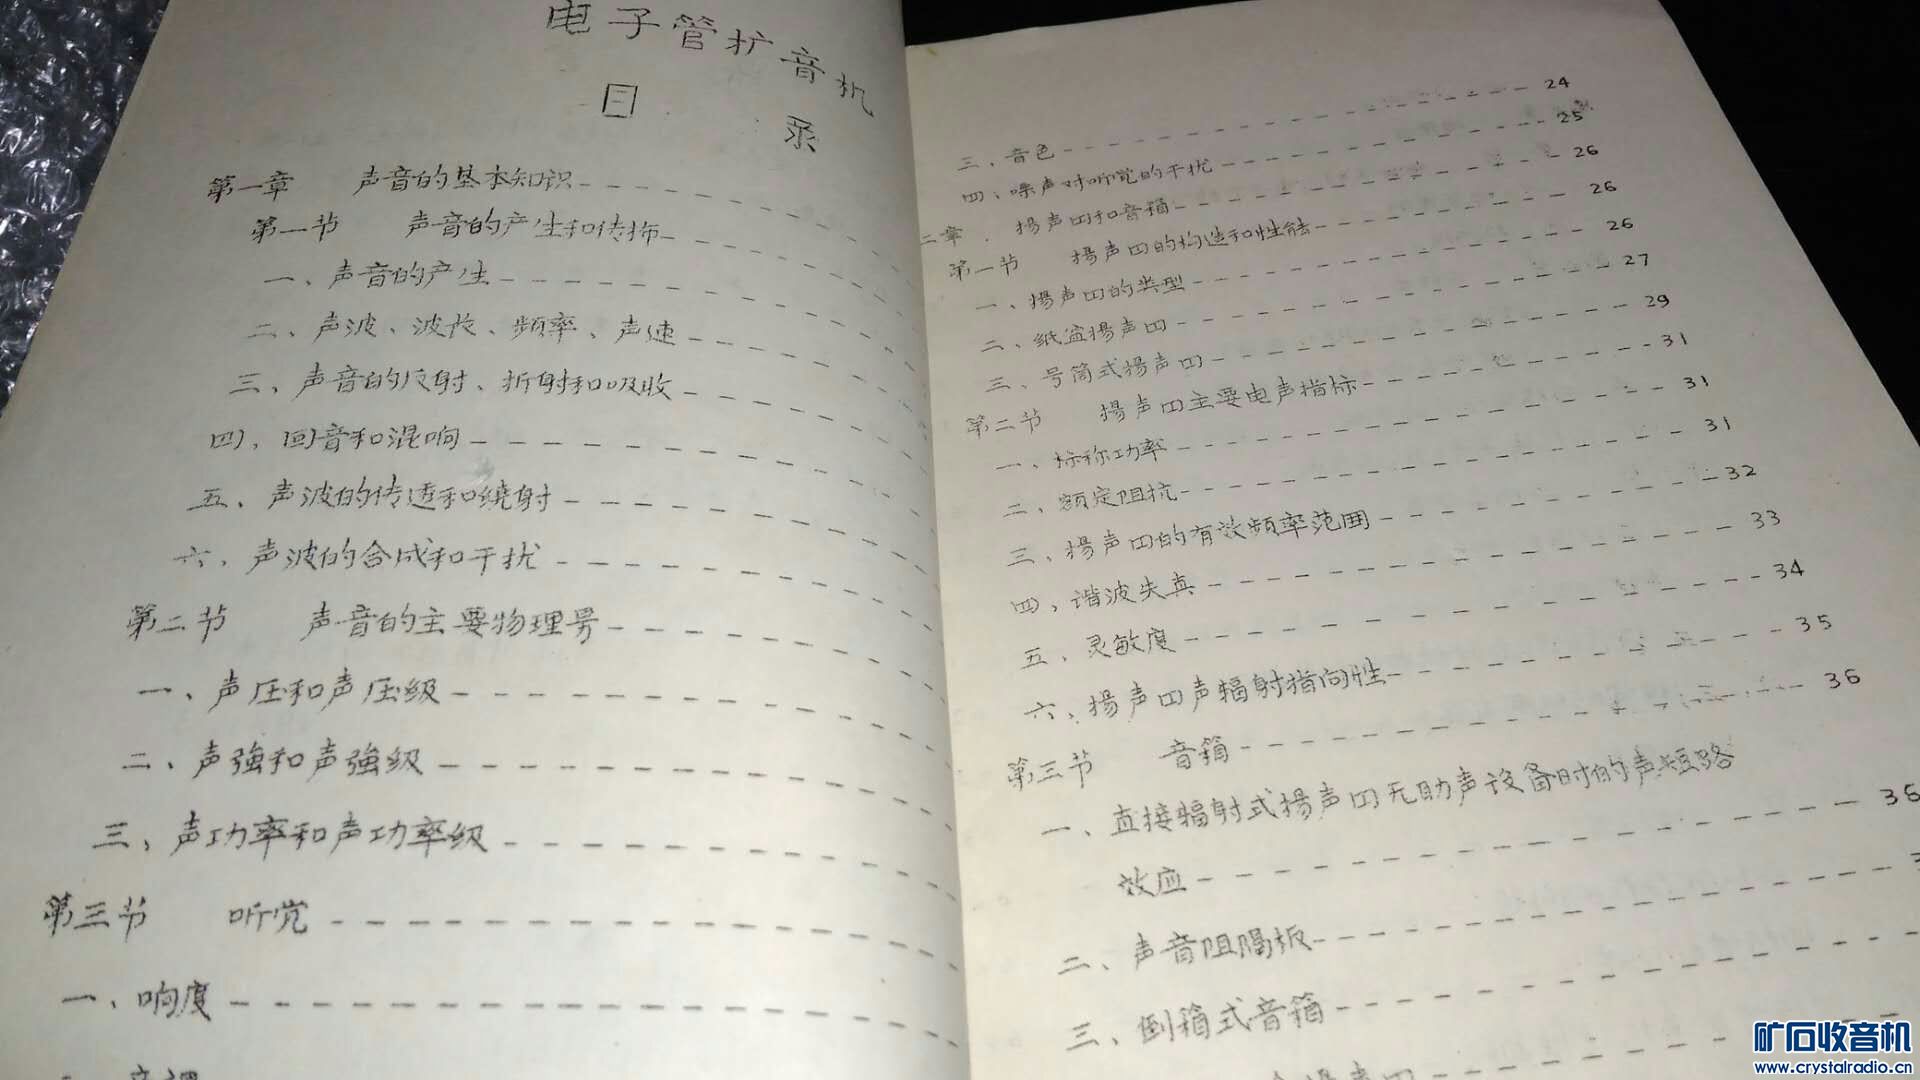 电子管扩音机
目 录
第一章 声音的基本知识
第一节 声音的产生和传播
一、声音的产生
二、声波、波长、频率、声速
三、声音的反射、折射和吸收
四、回音和混响
五、声波的传透和绕射
六、声波的合成和干扰
第二节 声音的主要物理量
一、声压和声压级
二、声強和声強级
三、声功率和声功率级
第三节 听觉
一、响度
三、音色 24
四、噪声对听觉的干扰 25
二章 揚声四和音箱 26
第一节 揚声四的构造和性能 26
一、揚声四的类型 26
二、纸盆揚声四 27
三、号筒式揚声四 29
第二节 揚声四主要电声指标 31
一、标称功率 31
二、额定阻抗 31
三、揚声四的有效频率范囲 32
四、谐波失真 33
五、灵敏度 34
六、揚声四声辐射指向性 35
第三节 音箱 36
一、直接辐射式揚声四无助声设备时的声短路
效应 36
二、声音阻隔板
三、倒箱式音箱
矿石收音机
www.crystalradio.cn